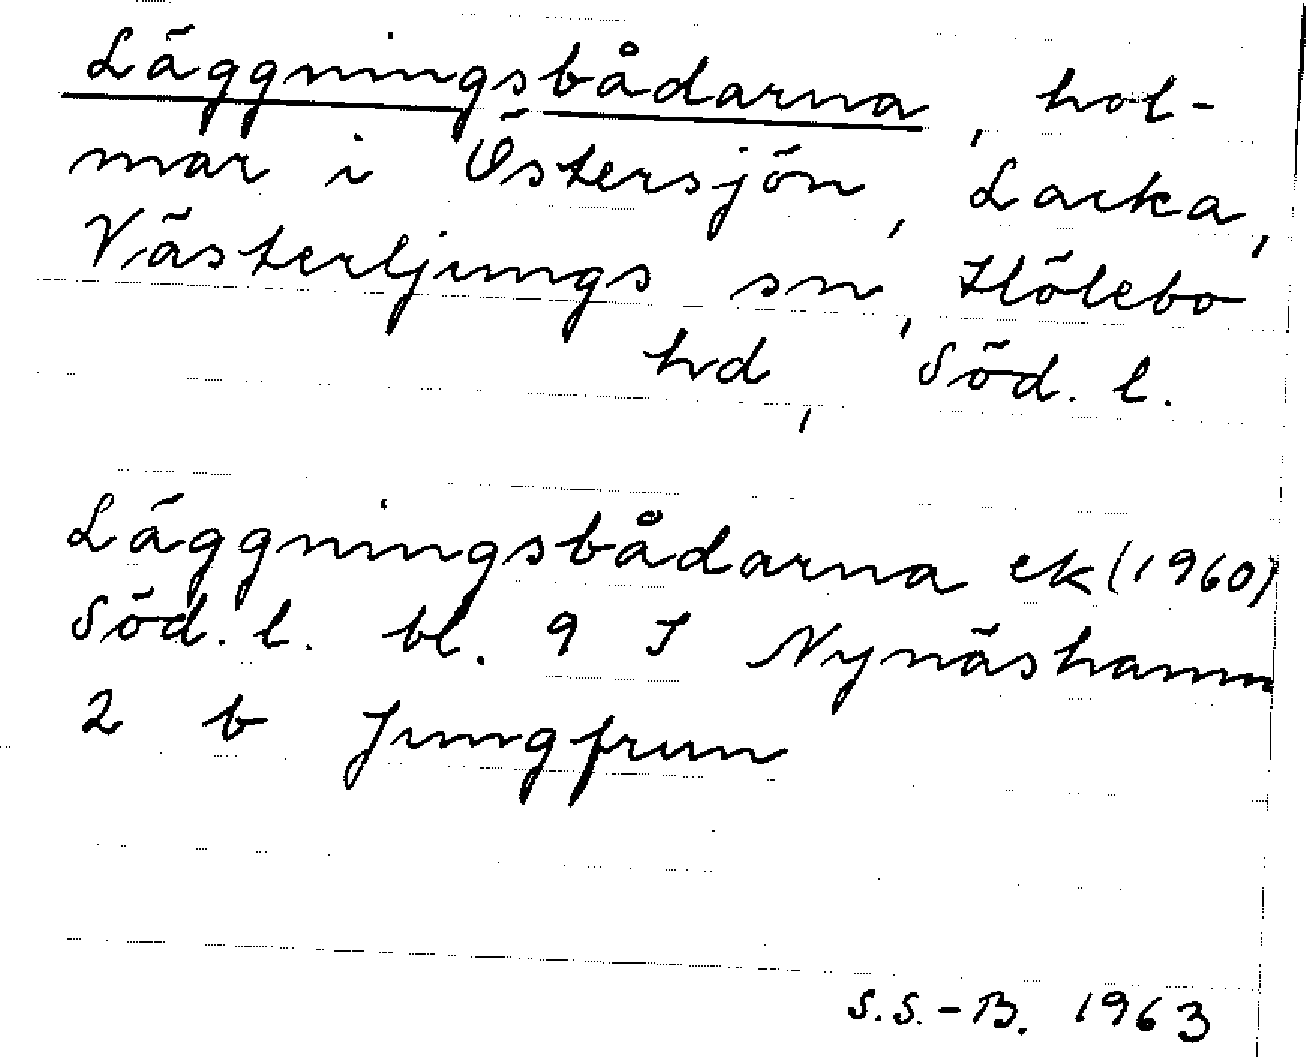 Läggningsbådarna, hol-
mar i Östersjön, Lacka,
Västerljungs sn, Hölebo
hd, Söd. l.
Läggningsbådarna ek (1960)
Söd. l. bl. 9 I Nynäshamn
2 b Jungfrun
S.S.-B. 1963